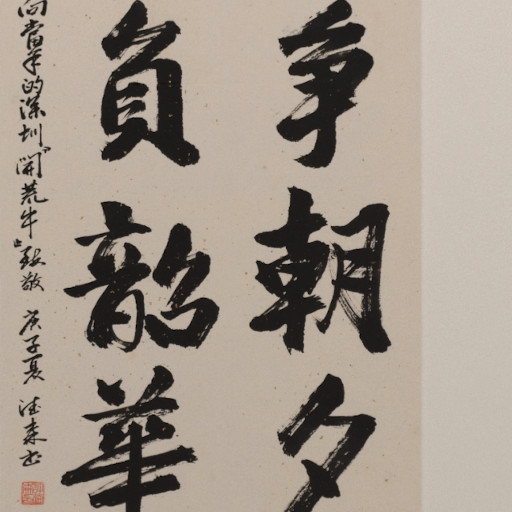 争朝夕
負韶華
向當年的深圳“開荒牛”致敬 庚子夏 德森书